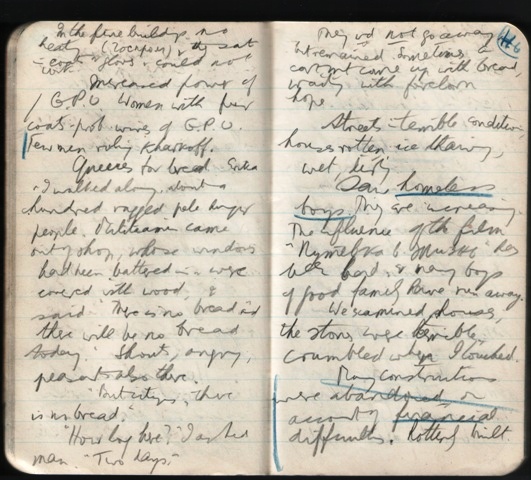 In the fine buildings no
heating & they sat
coats & gloves & could not
Increased power of
G.P.U. Women with fur
coats prob. wives of G.P.U.
Few men ruling Kharkoff.
Queues for bread. Erika
& I walked along about a
hundred ragged pale hungry
people. Militiaman came
out of shop, whose windows
had been battered in & were
covered with wood, &
said "There is no bread and
there will be no bread
today." Shouts, angry,
peasants also there.
"But citizens, there
is no bread."
"How long here?" I asked
man. "Two days."
46
They wd not go away
but remained. Sometimes a
cart might come up with bread
waiting with forlorn
hope
Streets - terrible condition
houses rotten, ice thawing,
wet, dirty.
Saw homeless
boys. They are increasing
The influence of the film
has
been bad, & many boys
of good family have run away.
We examined houses,
the stones were terrible
crumbled when I touched.
Many constructions
were abandoned on
account of financial
difficulties. Rottenly built